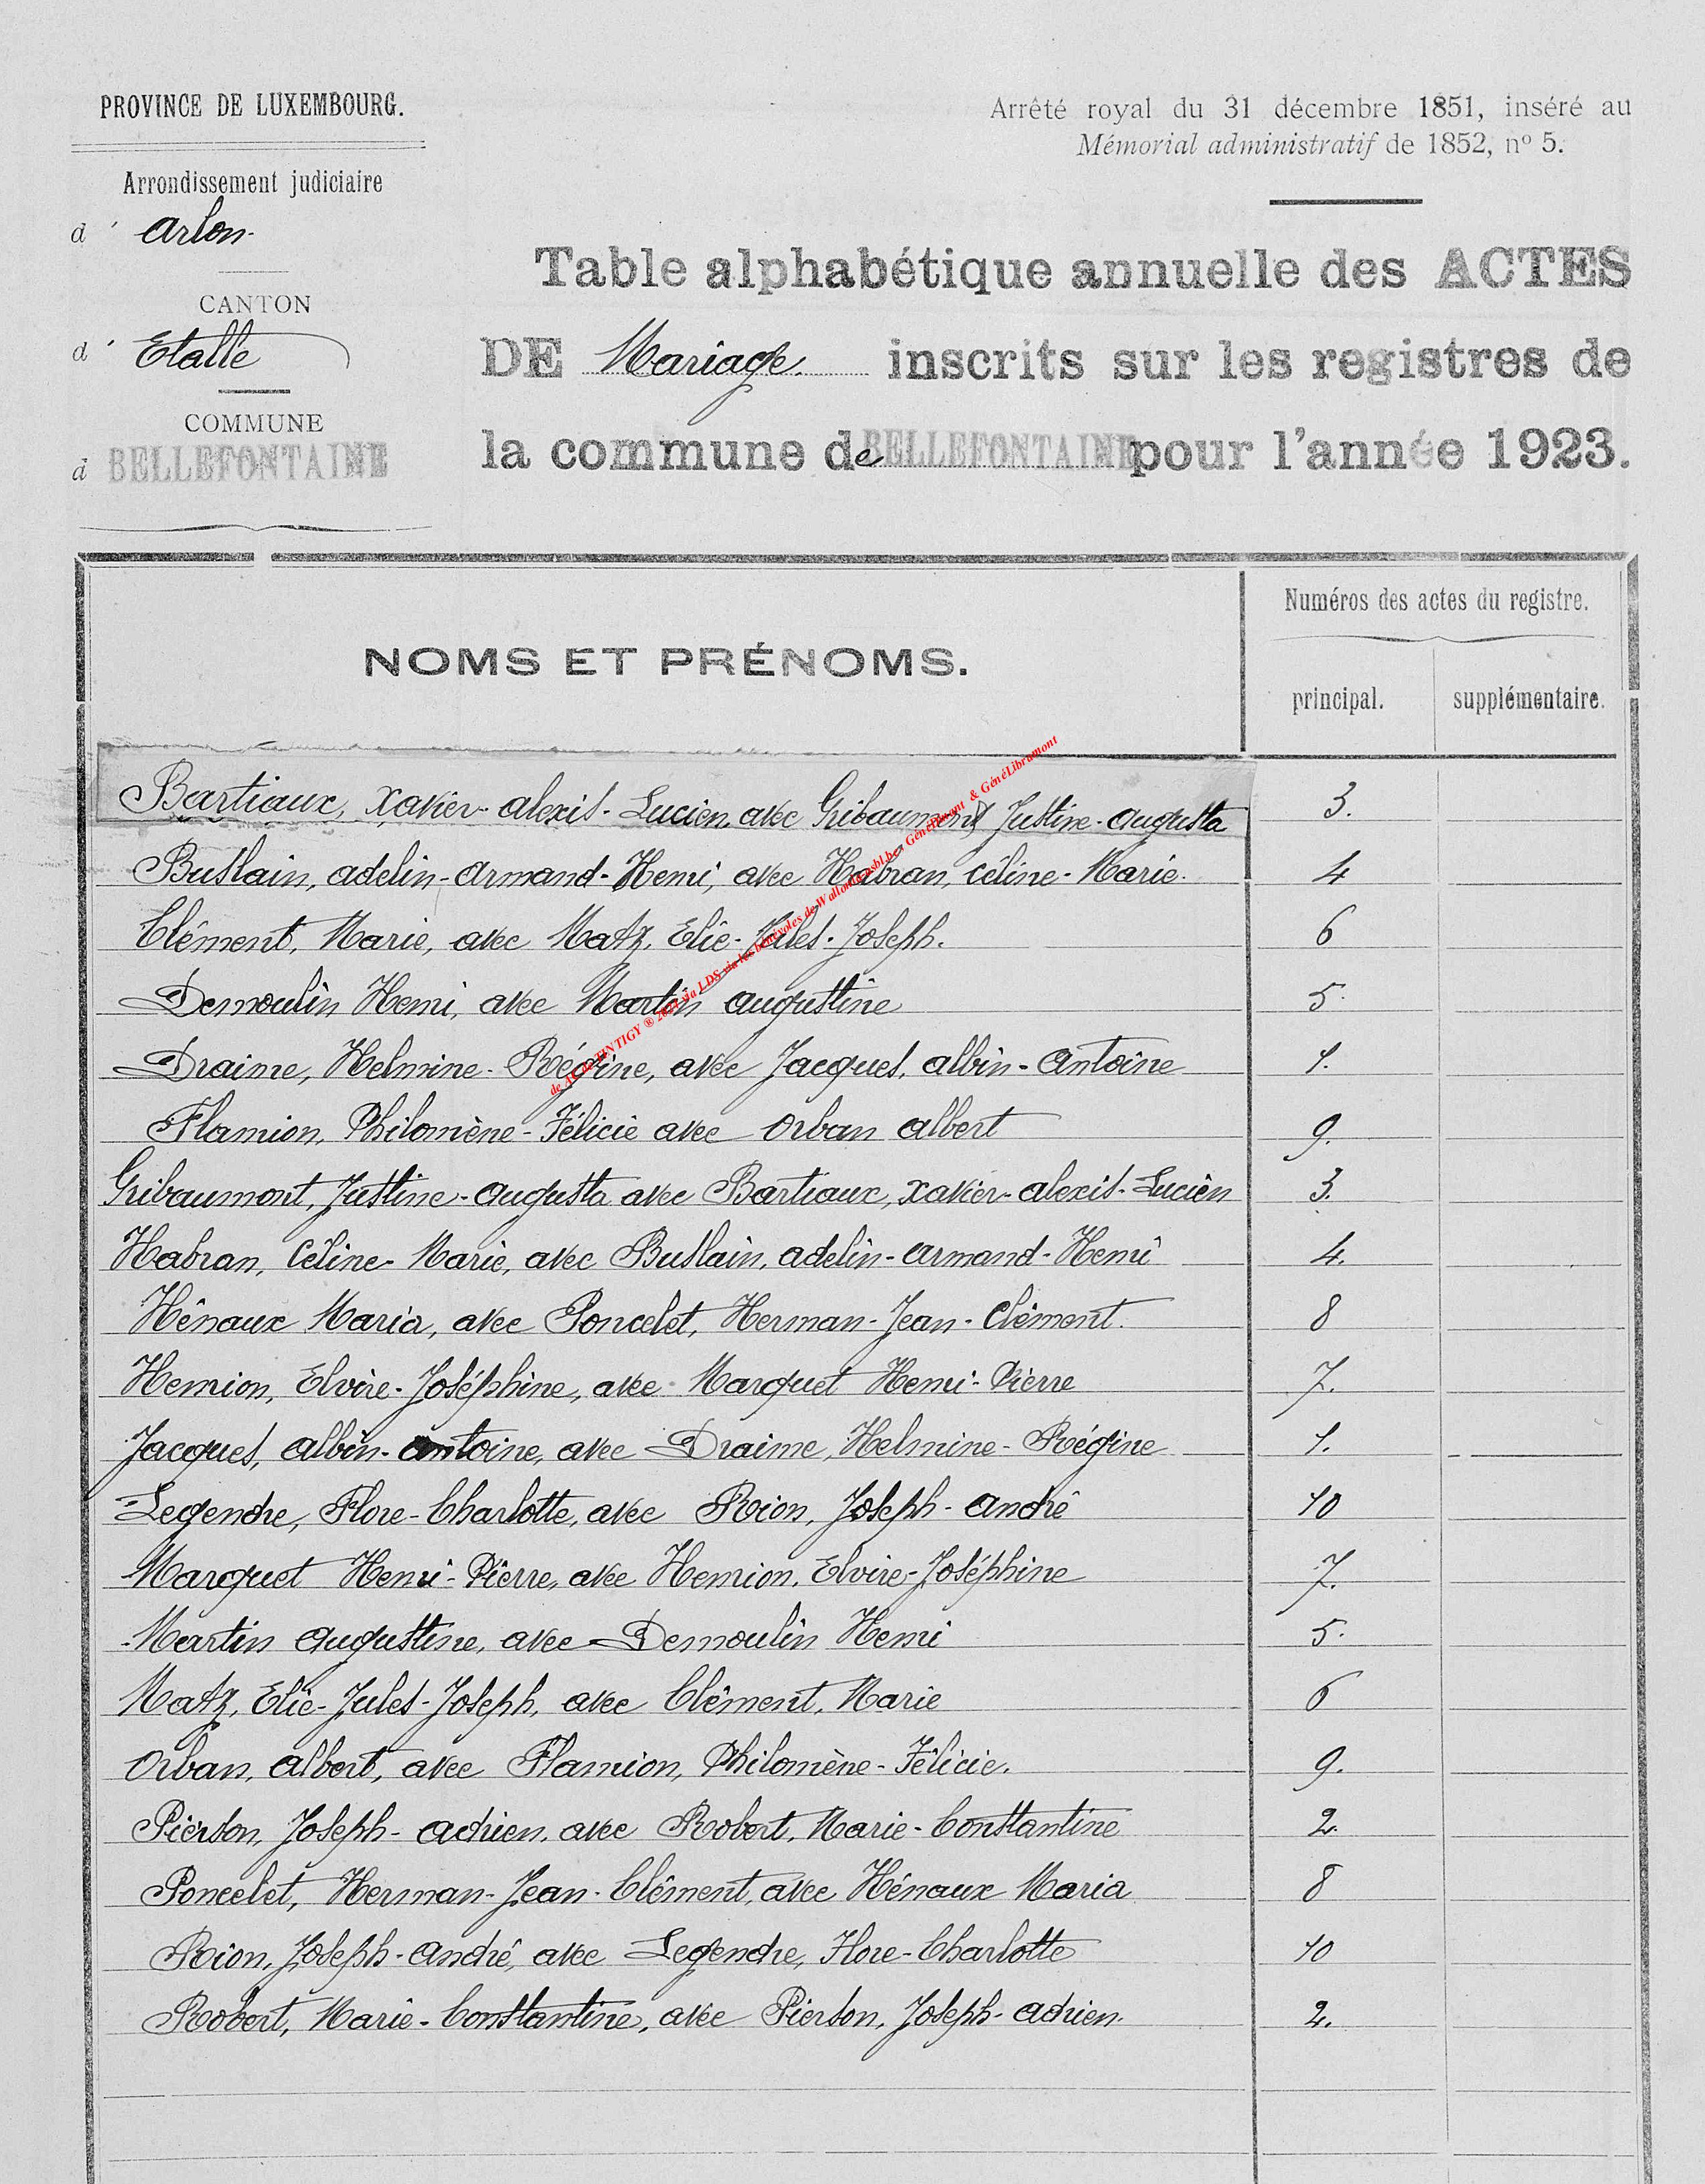 PROVINCE DE LUXEMBOURG.
Arrondissement judiciaire
d' Arlon.
CANTON
d' Etalle
COMMUNE
d BELLEFONTAINE
Arrêté royal du 31 décembre 1851, inséré au
Mémorial administratif de 1852, nº 5.
Table alphabétique annuelle des ACTES
DE Mariage. inscrits sur les registres de
la commune de BELLEFONTAINE pour l'année 1923.
NOMS ET PRÉNOMS.
Numéros des actes du registre.
principal. supplémentaire.
Bartiaux, Xavier-Alexis-Lucien, avec Gribaumont Justine-Augusta 3.
Buslain, Adelin-Armand-Henri, avec Habran, Céline-Marie. 4
Clément, Marie, avec Matz, Elie-Jules-Joseph. 6
Demoulin Henri, avec Martin Augustine 5.
Draime, Helmine-Régine, avec Jacques, Albin-Antoine 1.
Flamion, Philomène-Félicie avec Orban Albert 9.
Gribaumont, Justine-Augusta avec Bartiaux, Xavier-Alexis-Lucien 3.
Habran, Céline-Marie, avec Buslain, Adelin-Armand-Henri 4.
Hénaux Maria, avec Poncelet, Herman-Jean-Clément. 8
Henrion, Elvire-Joséphine, avec Marquet Henri-Pierre 7.
Jacques, Albin-Antoine, avec Draime, Helmine-Régine 1.
Legendre, Flore-Charlotte, avec Rion, Joseph-André 10
Marquet Henri-Pierre, avec Henrion, Elvire-Joséphine 7.
Martin Augustine, avec Demoulin Henri 5.
Matz, Elie-Jules-Joseph, avec Clément, Marie 6
Orban, Albert, avec Flamion, Philomène-Félicie. 9.
Pierson, Joseph-Adrien, avec Robert, Marie-Constantine 2.
Poncelet, Herman-Jean-Clément, avec Hénaux Maria 8
Rion, Joseph-André, avec Legendre, Flore-Charlotte 10
Robert, Marie-Constantine, avec Pierson, Joseph-Adrien. 2.
TINTIGY ® via LDS via les bénévoles de & GénéLibramont